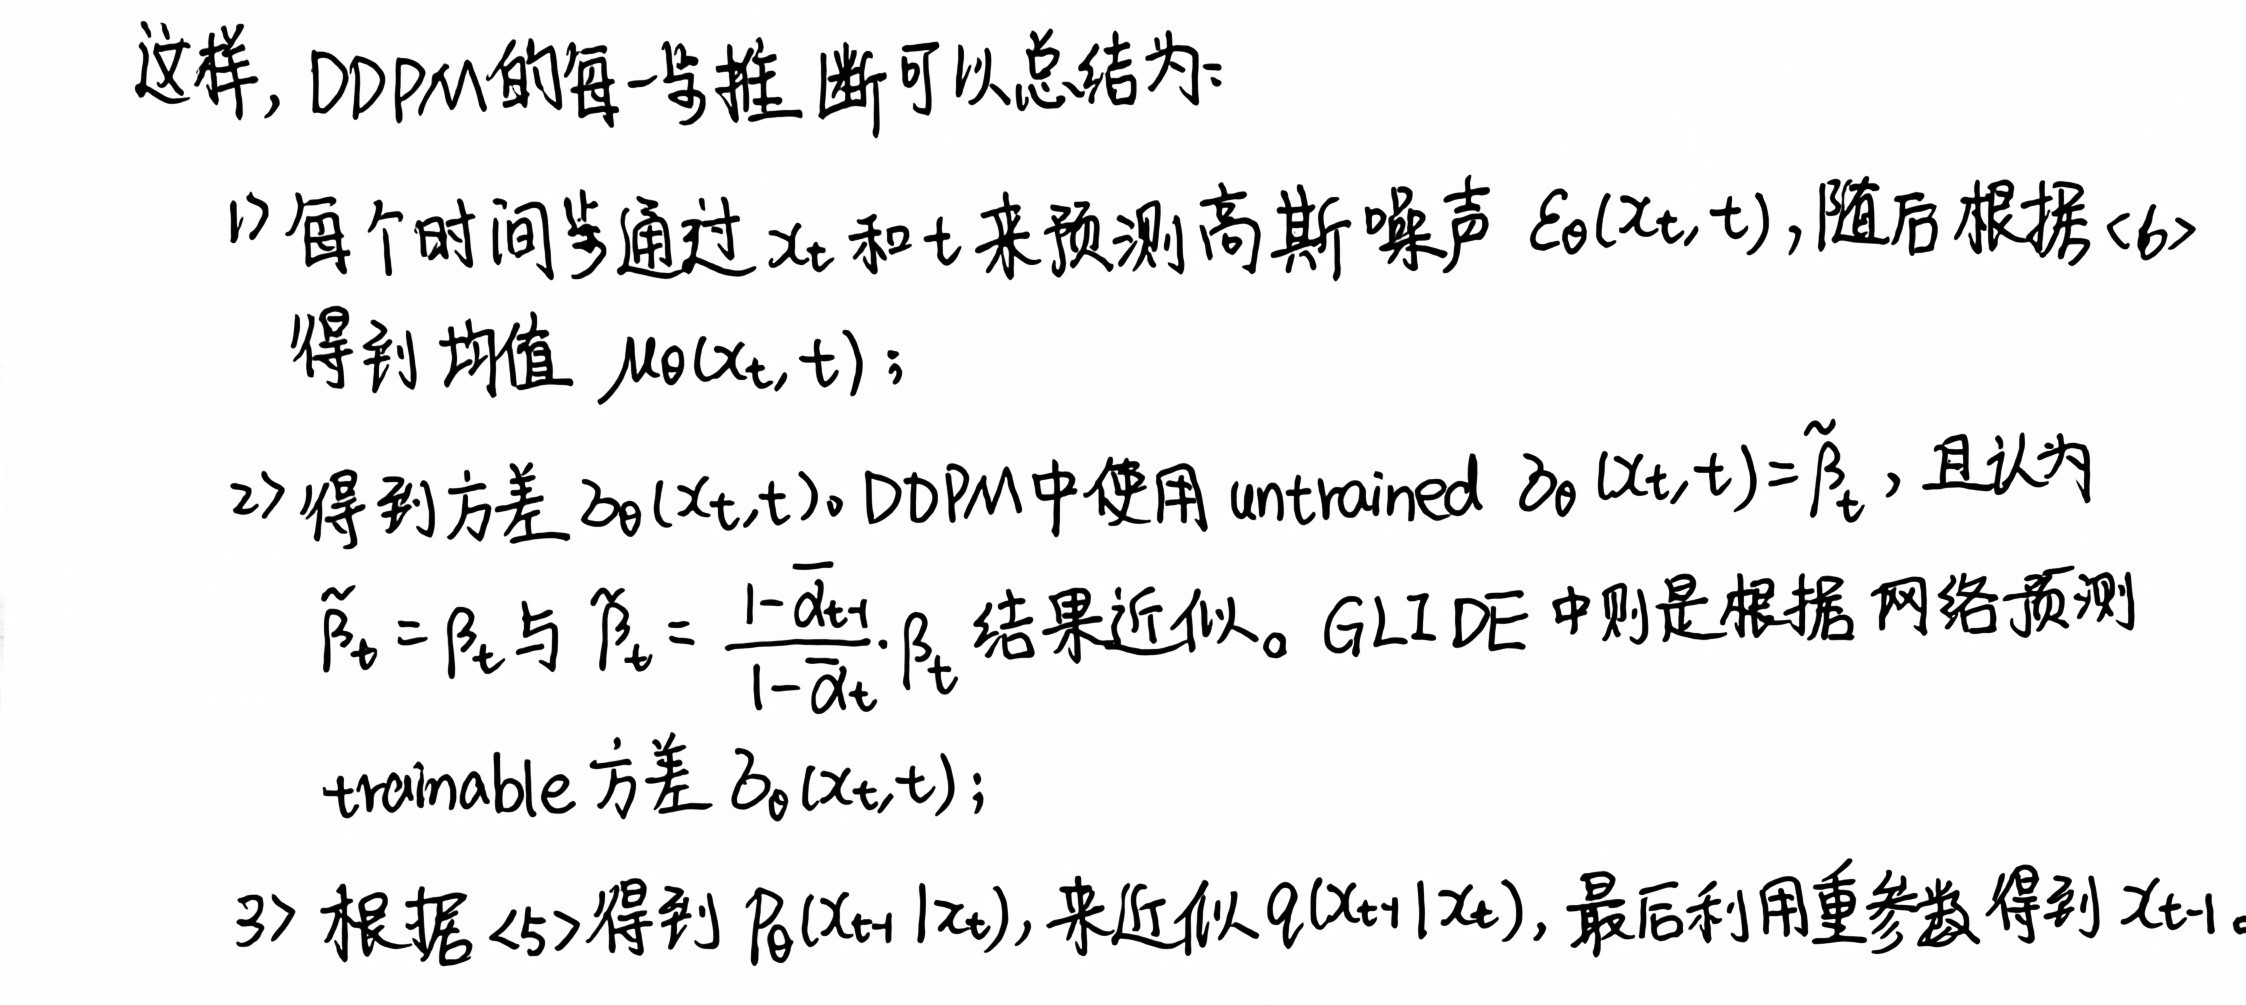 这样, DDPM的每一步推断可以总结为:
1> 每个时间步通过 xₜ 和 t 来预测高斯噪声 εθ(xₜ, t), 随后根据<6>
得到均值 μθ(xₜ, t);
2> 得到方差 σθ(xₜ, t)。DDPM中使用 untrained σθ(xₜ, t) = β̃ₜ, 且认为
β̃ₜ = βₜ 与 β̃ₜ = (1-ᾱₜ₋₁)/(1-ᾱₜ) · βₜ 结果近似。GLIDE中则是根据网络预测
trainable 方差 σθ(xₜ, t);
3> 根据<5>得到 Pθ(xₜ₋₁|xₜ), 来近似 q(xₜ₋₁|xₜ), 最后利用重参数得到 xₜ₋₁。